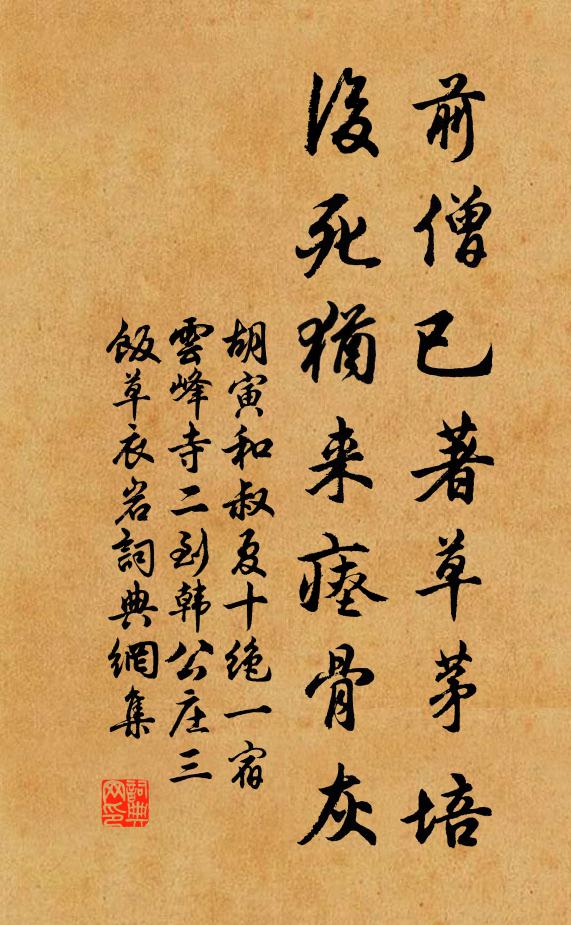 前僧已著草茅培
後死猶来瘞骨灰
胡寅和叔夏十絶一宿
雲峰寺二到韩公庄三
飯草衣岩詞典網集
詞典网印